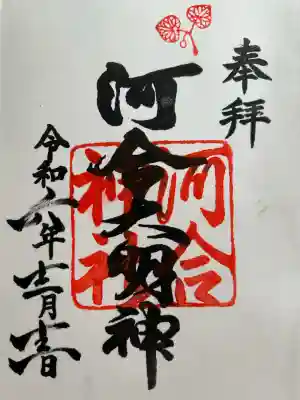 奉拝
河合大明神
河合神社
令和六年十一月十一日